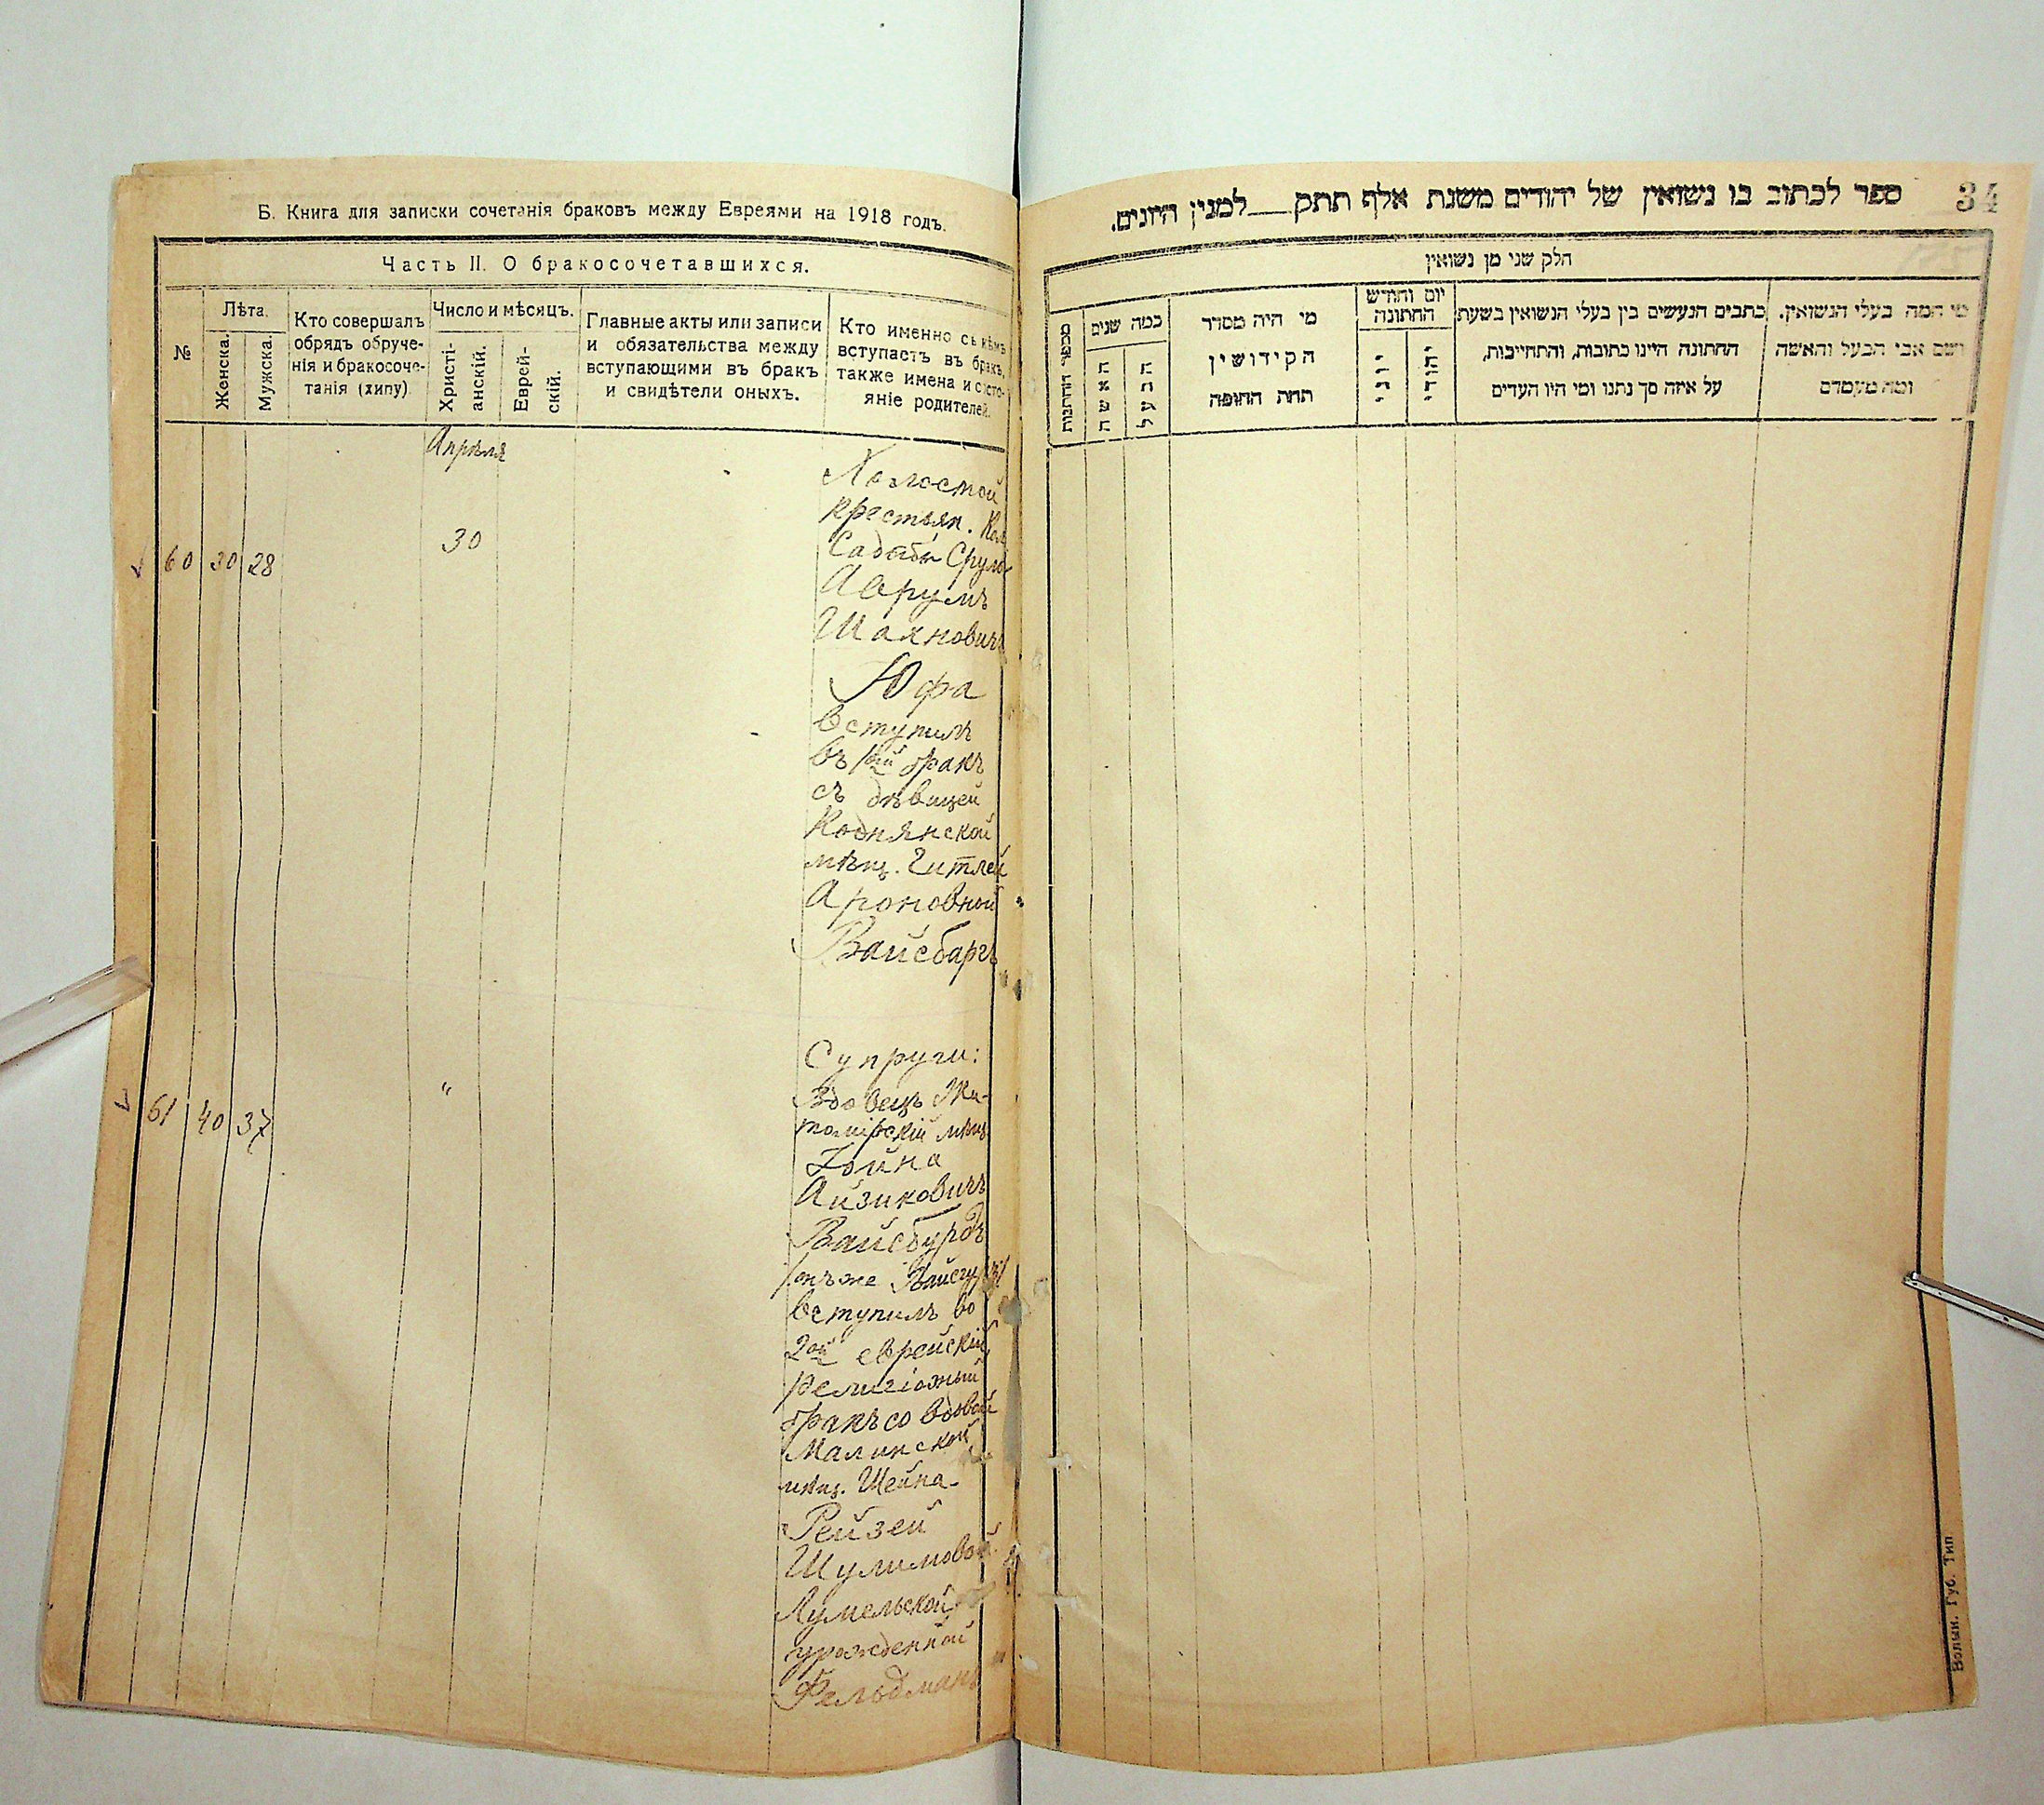 Б. Книга для записки сочетанія браковъ между Евреями на 1918 годъ.
Часть II. О бракосочетавшихся.
№
Лѣта.
Женска.
Мужска.
Кто совершалъ
обрядъ обруче-
нія и бракосоче-
танія (хипу)
Число и мѣсяцъ.
Христі-
анскій.
Еврей-
скій.
Главные акты или записи
и обязательства между
вступающими въ бракъ
и свидѣтели оныхъ.
Кто именно съ кѣмъ
вступаетъ въ бракъ,
также имена и состо-
яніе родителей.
Апрѣля
60 30 28
30
Холостой
крестьян.
Срул
Аврумъ
Шахновичъ
Юфа
вступилъ
въ 1ый бракъ
съ дѣвицей
Коднянской
мѣщ. Гитлей
Ароновной
Вайсбаргъ
61 40 37
"
Супруги:
Вдовецъ Жи-
томірскій мѣщ
Іойна
Айзиковичъ
Вайсбурдъ
/онъ же
вступилъ во
2ой еврейскій
религіозный
бракъ со вдовой
Малинской
мѣщ. Шейна-
Рейзей
Шулимовой
Лумельской
урожденной
Фельдманъ
34
ספר לכתוב בו נשואין של יהודים משנת אלף תתק__למנין היונים.
חלק שני מן נשואין
מי המה בעלי הנשואין.
ושם אבי הבעל והאשה
ומה מעמדם
כתבים הנעשים בין בעלי הנשואין בשעת
החתונה היינו כתובות, והתחייבות,
על איזה סך נתנו ומי היו העדים
יום וחודש
החתונה
יהודי
יוני
מי היה מסדר
הקידושין
תחת החופה
כמה שנים
הבעל
האשה
מספר החתונות
Волын. Губ. Тип